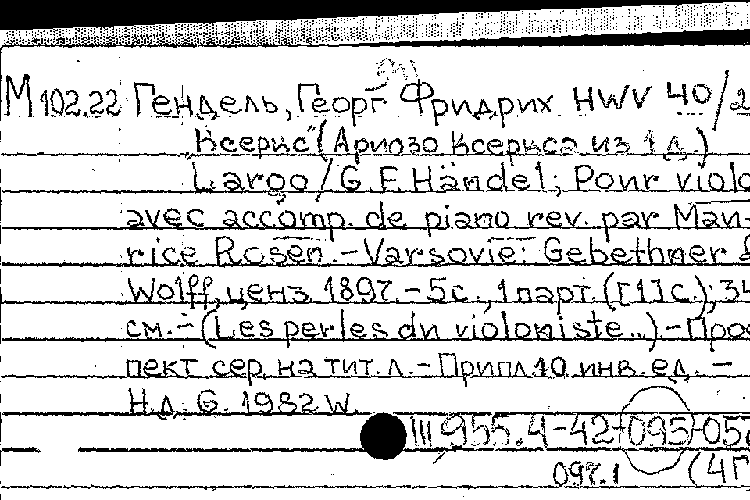 М 102.22 Гендель, Георг Фридрих HWV 40/2
„Ксеркс“ (Ариозо Ксеркса из 1 д.)
Largo / G. F. Händel; Pour violo
avec accomp. de piano rev. par Mau-
rice Rosen. – Varsovie: Gebethner &
Wolff, ценз. 1897. – 5 с., 1 парт. ([1] с.); 34
см. – (Les perles du violoniste...) – Прос
пект сер. на тит. л. – Припл. 10 инв. ед. –
Н.д. G. 1982 W.
III 955.4-42-095-05
097.1 (4П